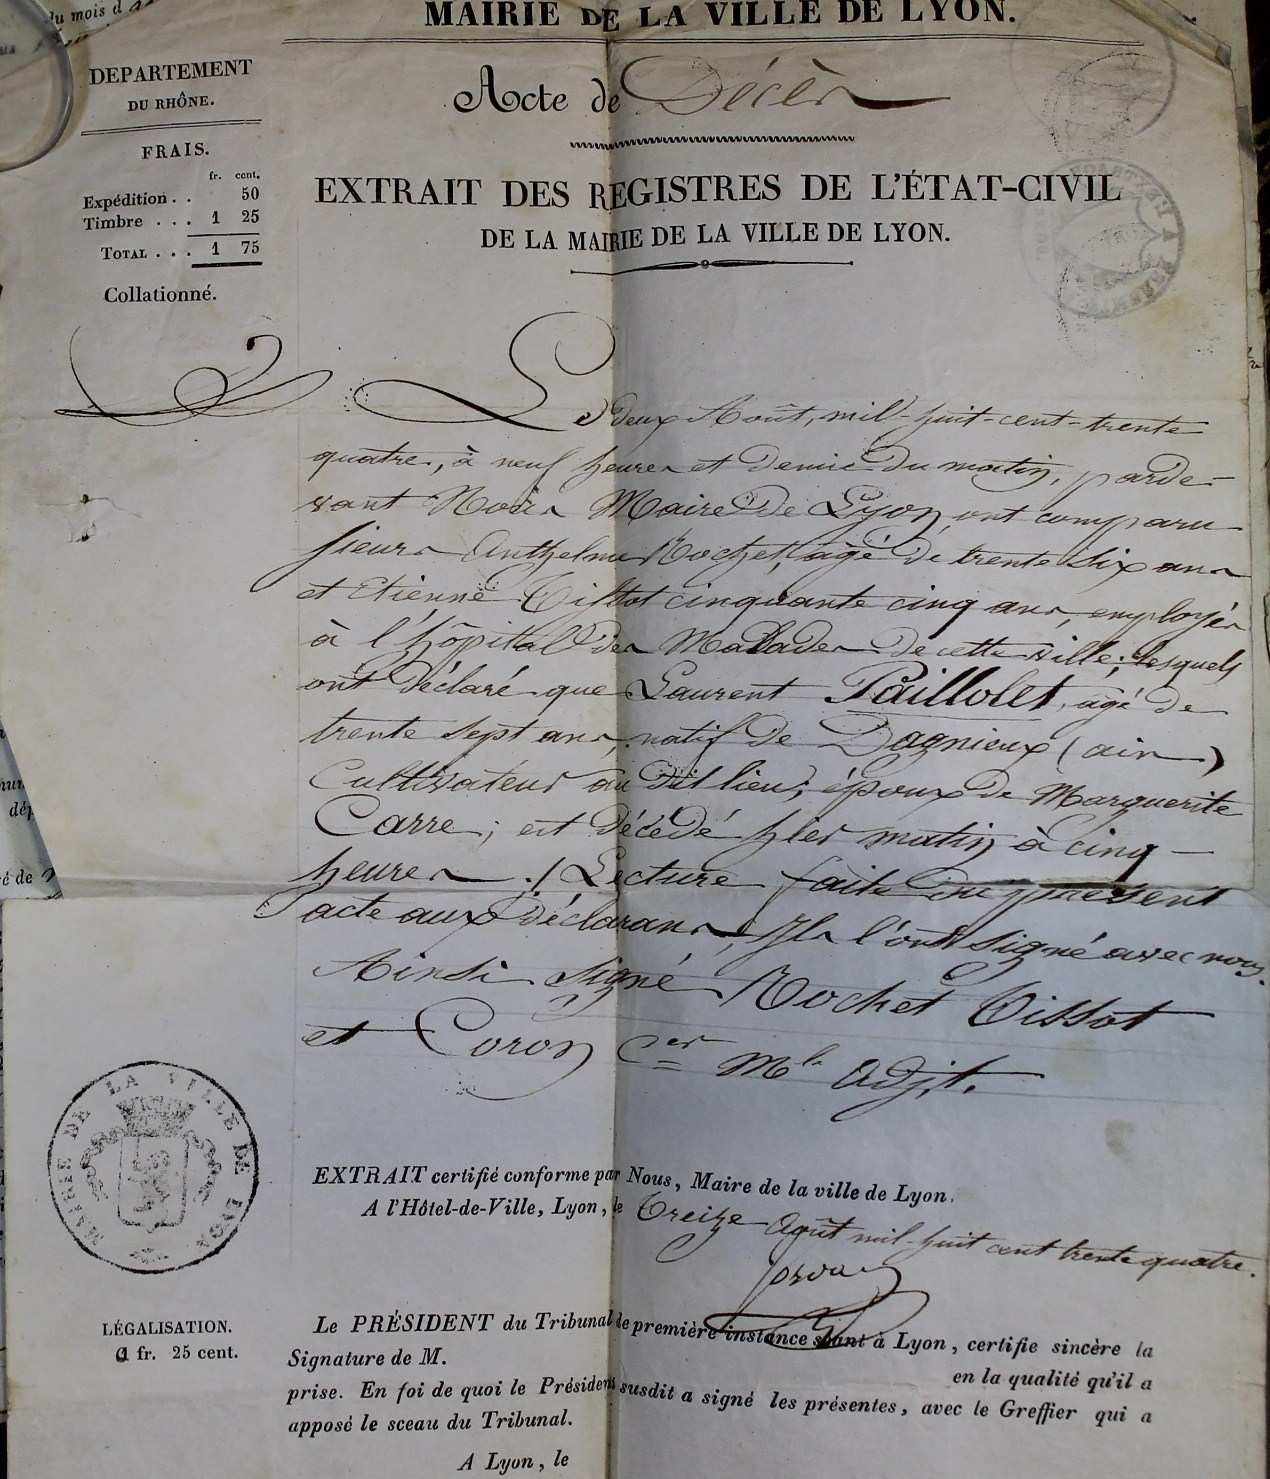 MAIRIE DE LA VILLE DE LYON.
du mois d
DEPARTEMENT
DU RHÔNE.
FRAIS.
fr. cent.
Expédition . . 50
Timbre . . . 1 25
TOTAL . . . 1 75
Collationné.
Acte de Décès
EXTRAIT DES REGISTRES DE L'ÉTAT-CIVIL
DE LA MAIRIE DE LA VILLE DE LYON.
Le deux Août, mil-huit-cent-trente
quatre, à neuf heures et demie du matin, parde-
vant Nous Maire de Lyon, ont comparu
sieurs Anthelme Rochet, âgé de trente six ans
et Etienne Tissot cinquante cinq ans, employés
à l'hôpital des Malades de cette ville; lesquels
ont déclaré que Laurent Paillolet, agé de
trente sept ans, natif de Dagnieux (ain)
Cultivateur au dit lieu; époux de Marguerite
Carre; est décédé hier matin à cinq
heures ./ Lecture faite du présent
acte aux déclarans, Ils l'ont signé avec nous.
Ainsi signé Rochet Tissot
et Coron Cer Ml adjt.
MAIRIE DE LA VILLE DE LYON
EXTRAIT certifié conforme par Nous, Maire de la ville de Lyon.
A l'Hôtel-de-Ville, Lyon, le Treize Août mil-huit cent trente quatre.
LÉGALISATION.
1 fr. 25 cent.
Le PRÉSIDENT du Tribunal de première instance séant à Lyon, certifie sincère la
Signature de M. en la qualité qu'il a
prise. En foi de quoi le Président susdit a signé les présentes, avec le Greffier qui a
apposé le sceau du Tribunal.
A Lyon, le